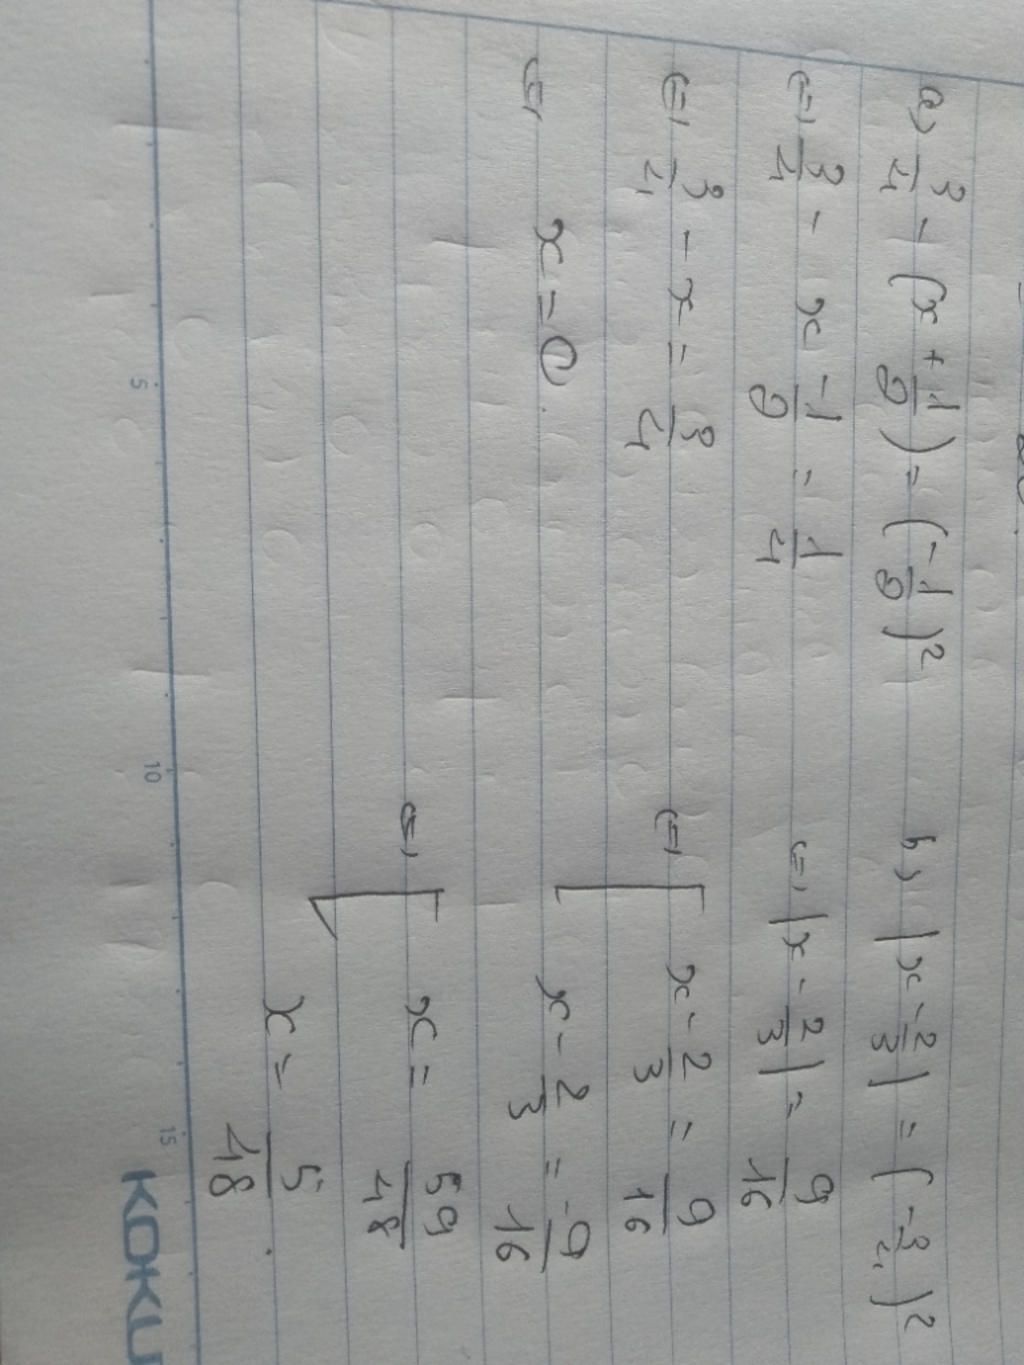 a) 3/4 - (x + 1/2) = (-1/2)²
<=> 3/4 - x - 1/2 = 1/4
<=> 3/4 - x = 3/4
<=> x = 0.
b) |x - 2/3| = (-3/4)²
<=> |x - 2/3| = 9/16
<=> [ x - 2/3 = 9/16
x - 2/3 = -9/16
<=> [ x = 59/48
x = 5/48.
5 10 15
KOKU